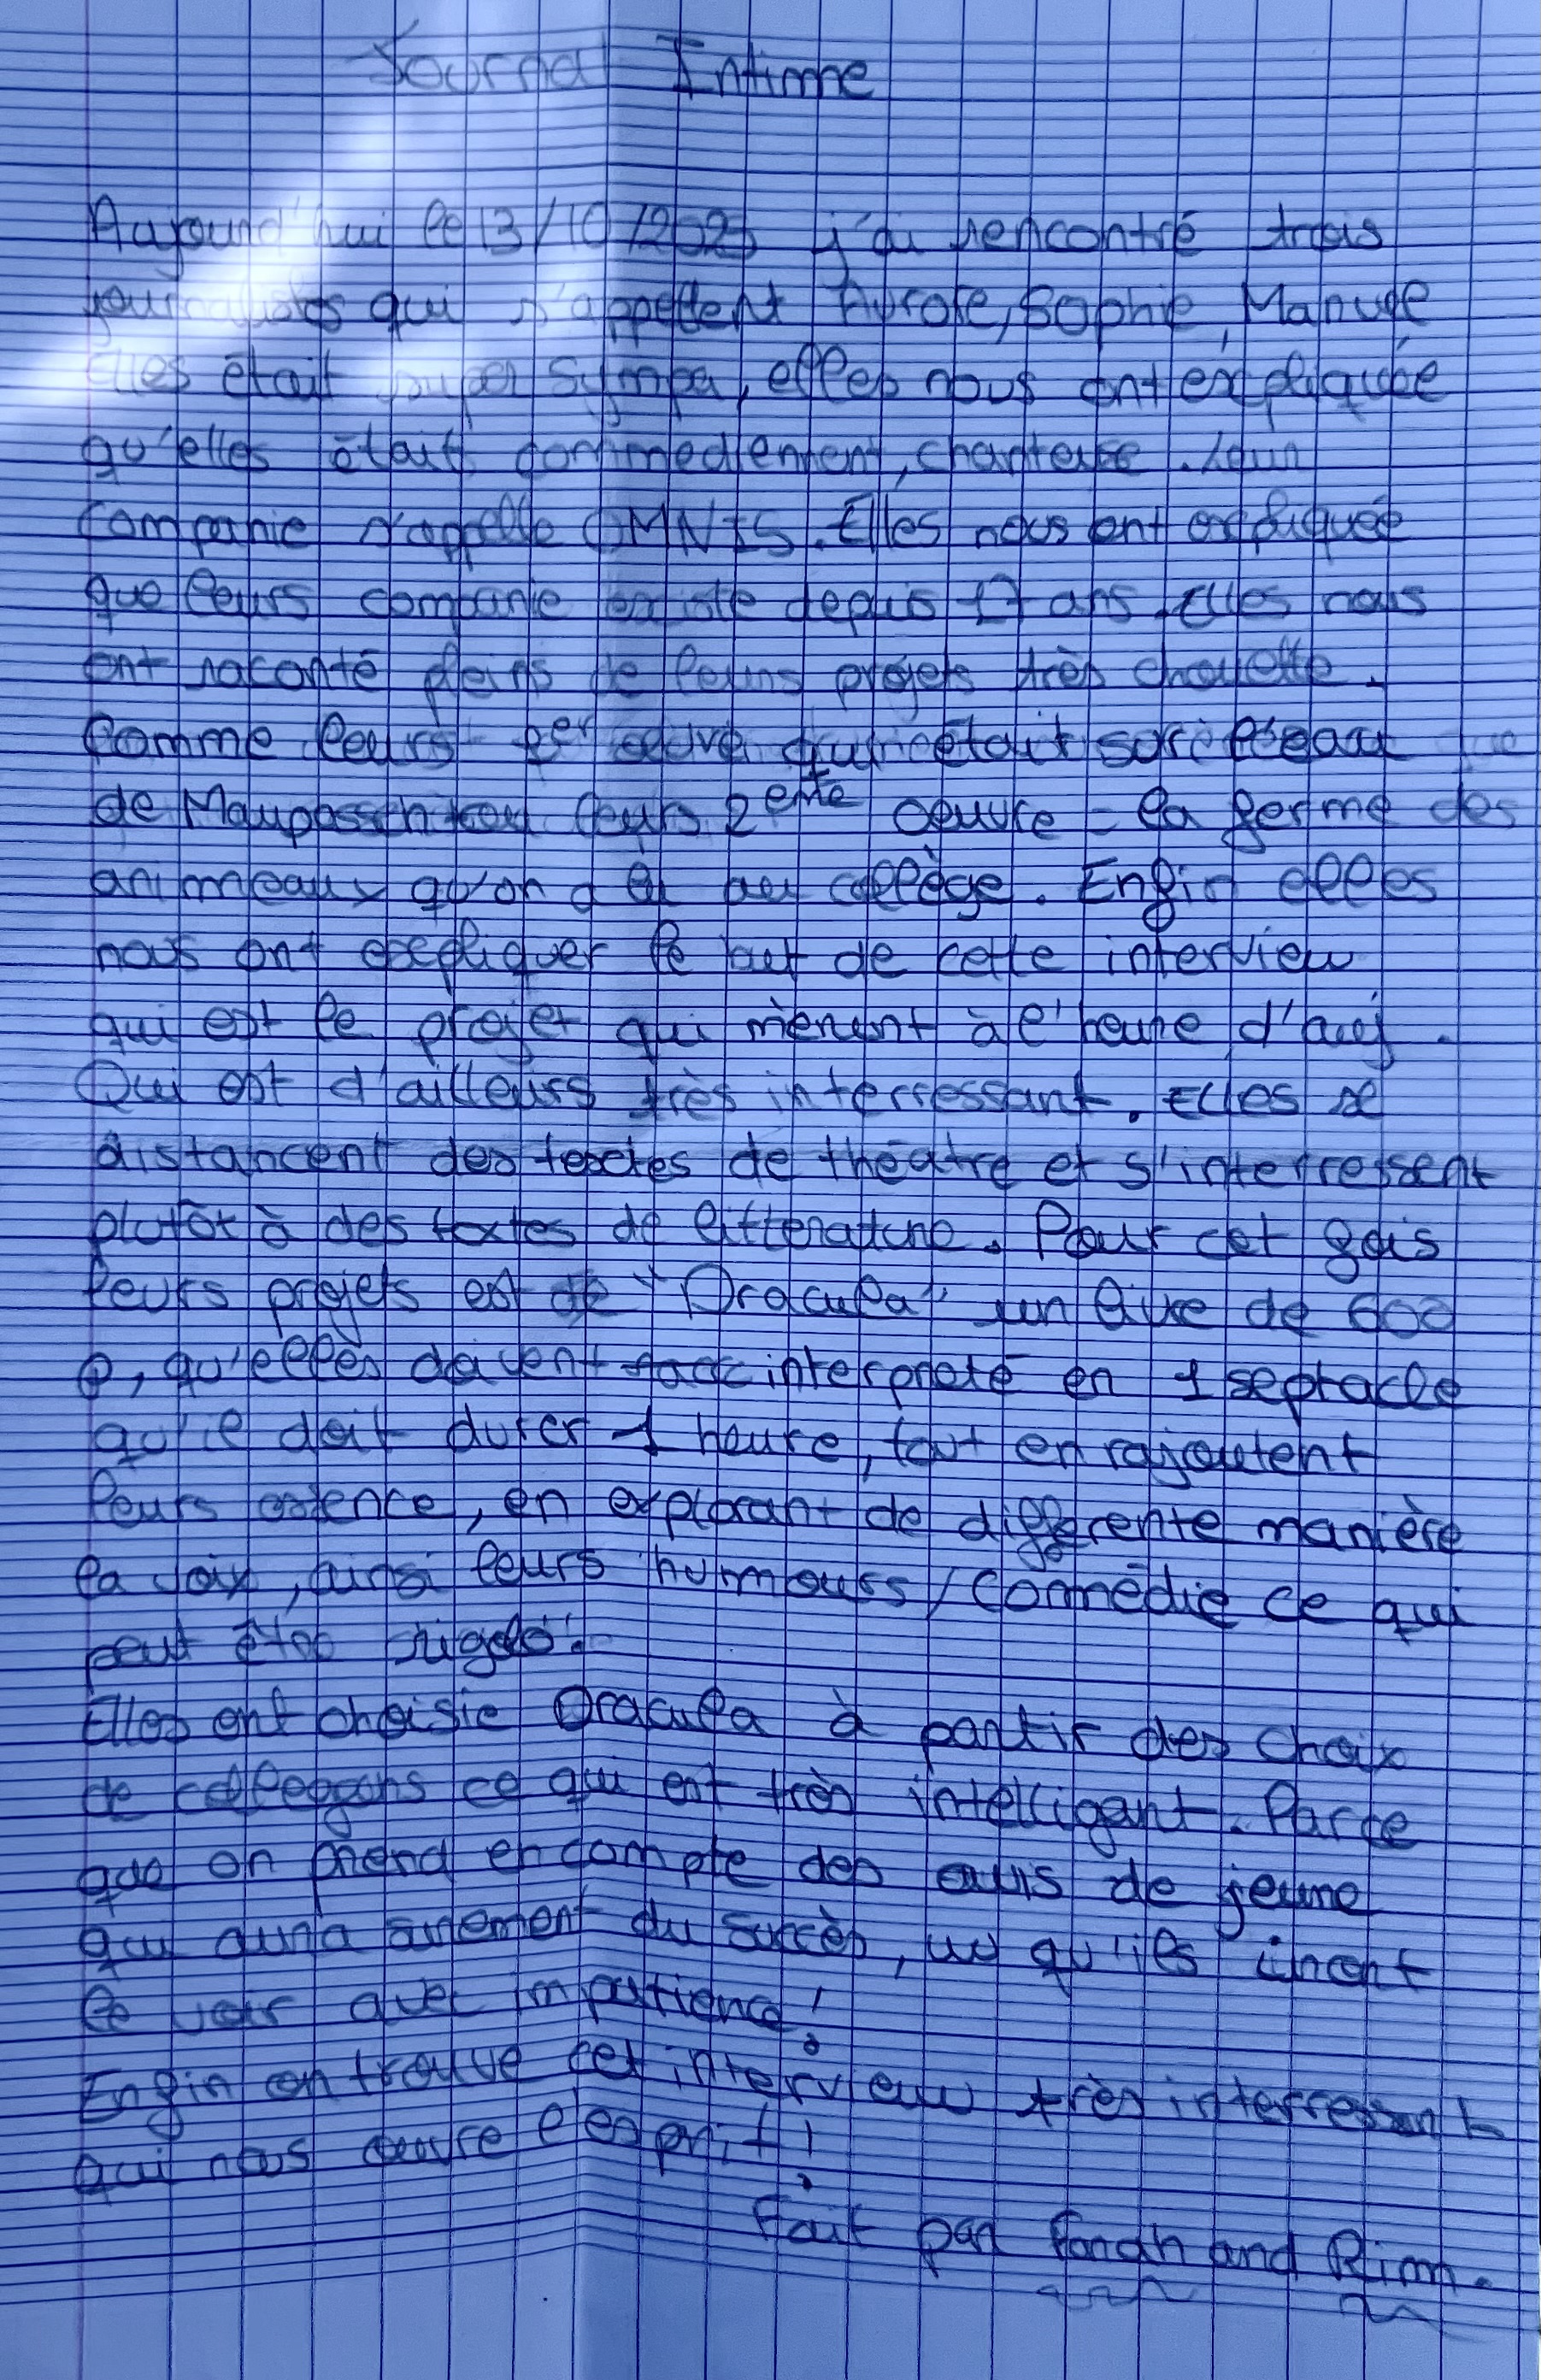 Journal Intime
Aujourd'hui le 13/10/2025 j'ai rencontré trois
journalistes qui s'appellent Aurore, Sophie, Manude
Elles était super sympa, elles nous ont éxpliquée
qu'elles était commedienent, chanteuse. Leur
companie s'appelle OMNIS. Elles nous ont expliquée
que leurs companie existe depuis 17 ans. Elles nous
ont raconté pleins de leurs projets très chouette.
Comme leurs 1er œuvre qui était
de leurs 2eme oeuvre - la ferme des
animeaux qu'on a lu au collège. Enfin elles
nous ont expliquer le but de cette interview
qui est le projet qui mènent à l'heure d'auj.
Qui est d'ailleurs très interressant. Elles se
distancent des textes de théatre et s'interressent
plutôt à des textes de litterature. Pour cet fois
leurs projets est de "Dracula" un livre de 600
p, qu'elles doivent interpreté en 1 septacle
qu'il doit durer 1 heure, tout en rajoutent
leurs essence, en explorant de differente manière
la voix, ainsi leurs humouss/Commédie ce qui
peut être rigolo.
Elles ont choisie Dracula à partir des choix
de collegens ce qui est très intelligant. Parce
que on prend en compte des avis de jeune
qui aura surement du succès, vu qu'ils iront
le voir avec impatience!
Enfin on trouve cet interview très interressant
qui nous ouvre l'esprit!
Fait par Farah and Rim.